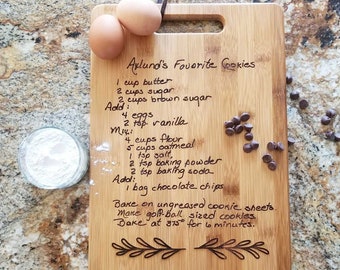 Axlund's Favorite Cookies
1 cup butter
2 cups sugar
2 cups brown sugar
Add:
4 eggs
2 tsp vanilla
Mix:
4 cups flour
5 cups oatmeal
1 tsp salt,
2 tsp baking powder
2 tsp baking soda
Add:
1 bag chocolate chips
Bake on ungreased cookie sheets.
Make golf ball sized cookies.
Bake at 375° for 6 minutes.